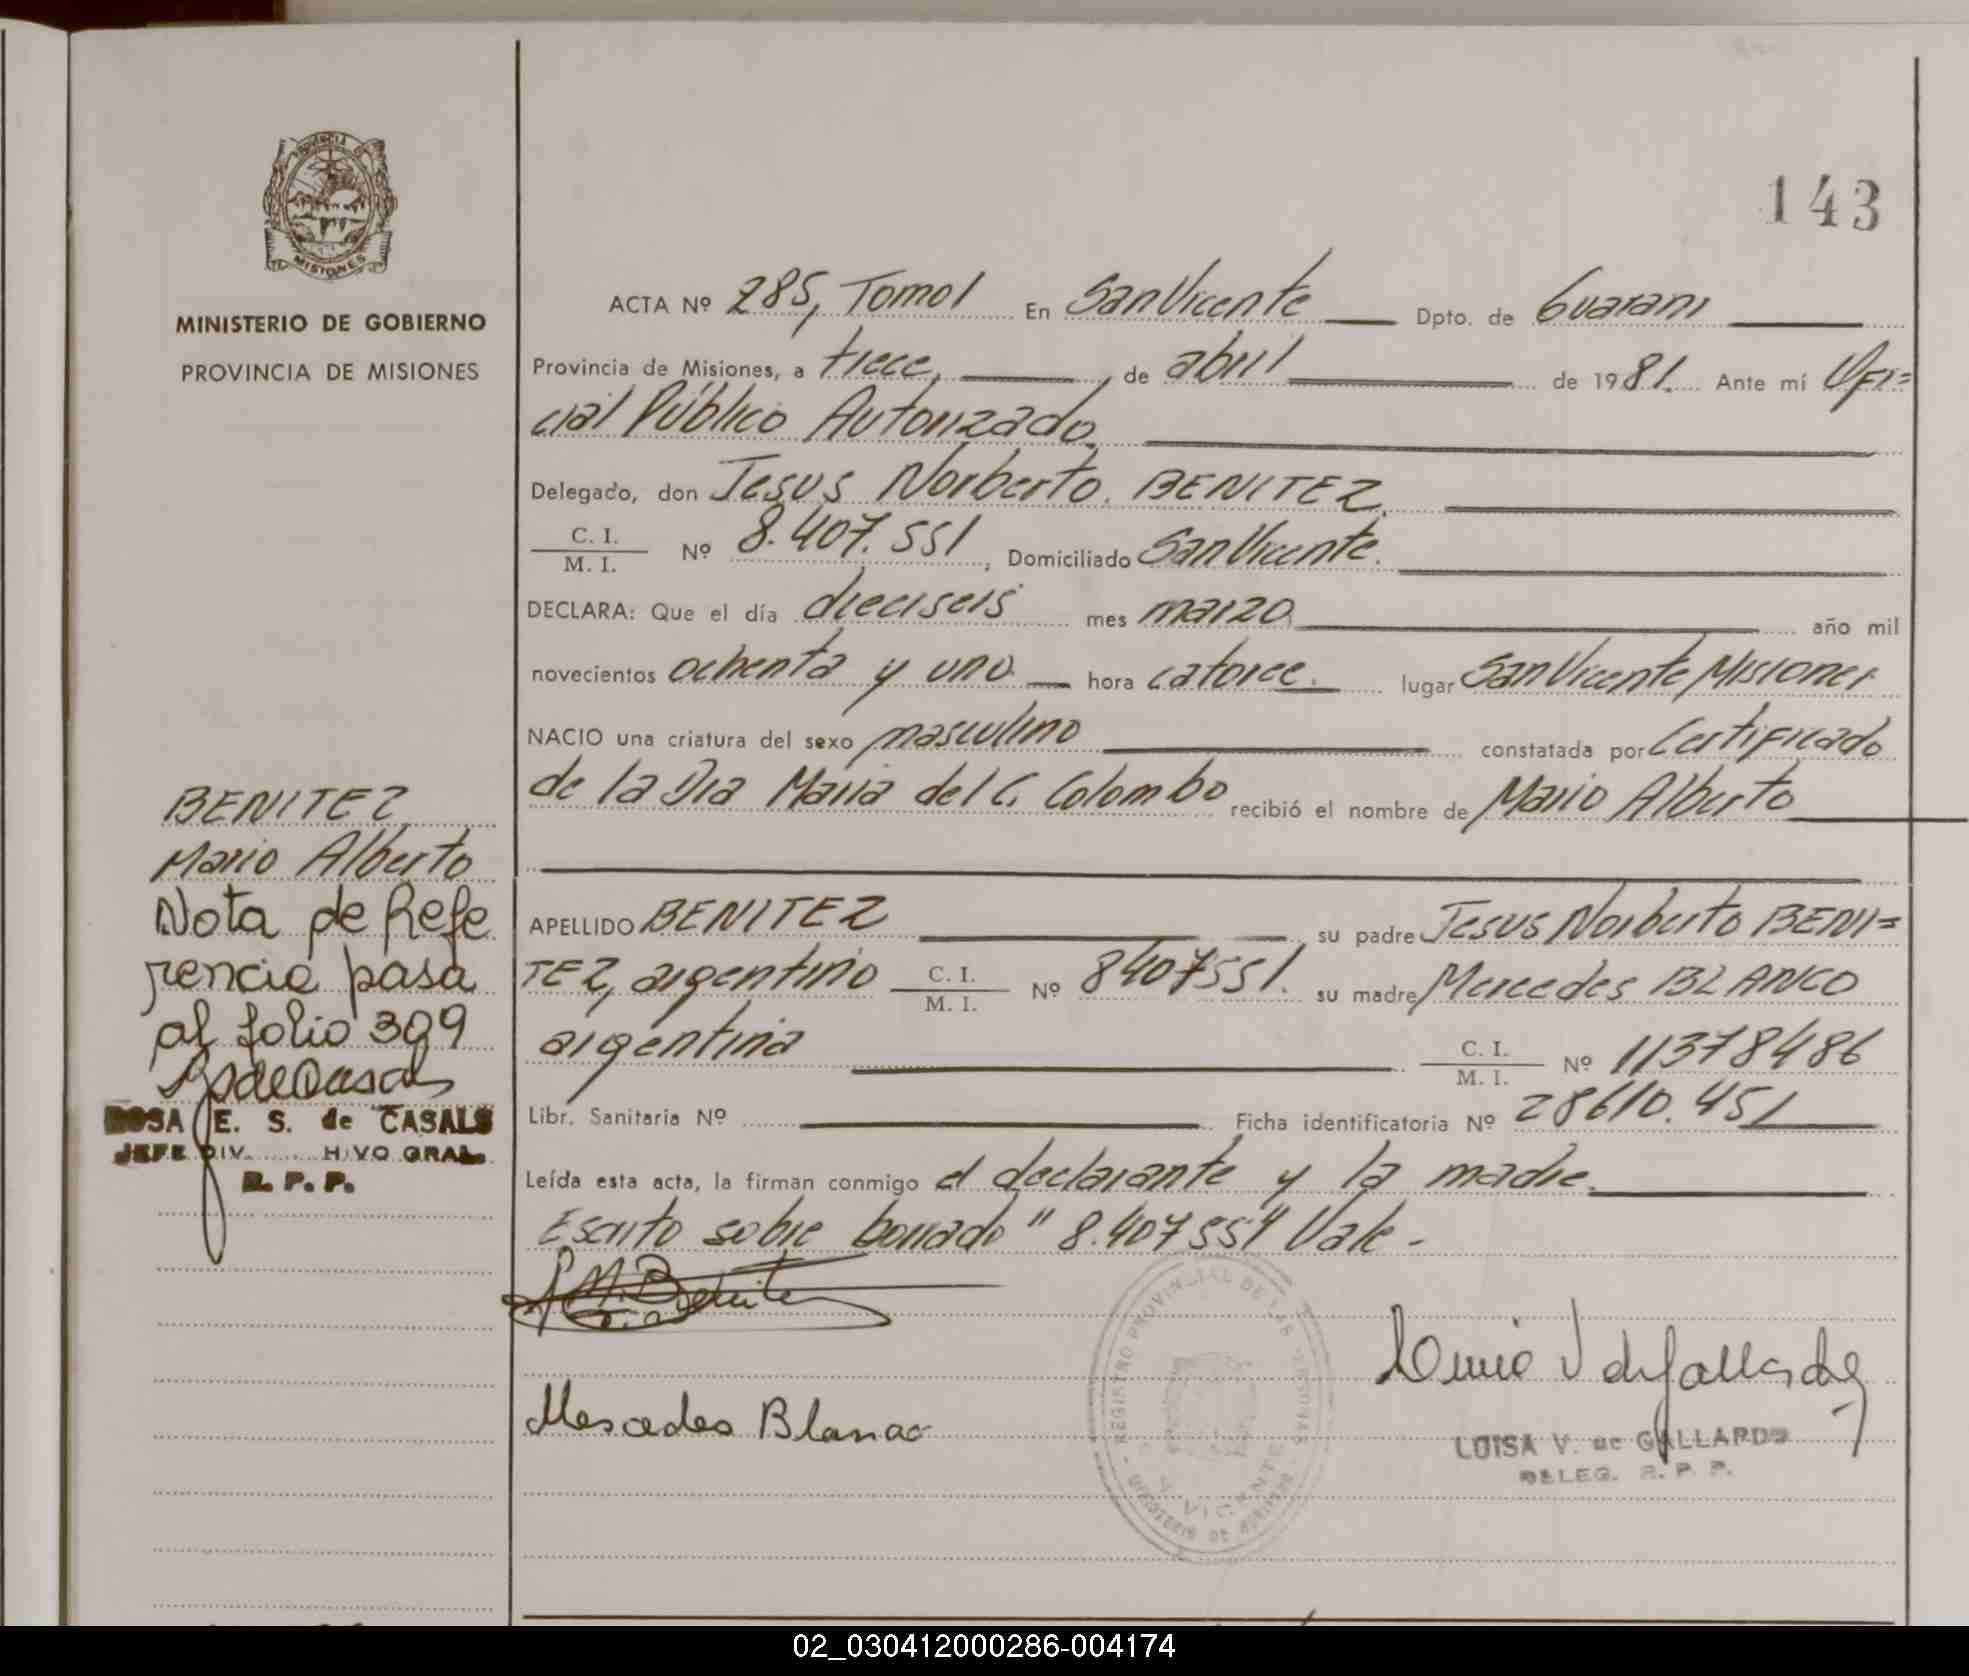 PROVINCIA DE
MISIONES
MINISTERIO DE GOBIERNO
PROVINCIA DE MISIONES
143
ACTA Nº 285, Tomo I En San Vicente Dpto. de Guarani
Provincia de Misiones, a trece, de abril de 1981. Ante mí Ofi=
cial Público Autorizado.
Delegado, don Jesus Norberto. BENITEZ.
C. I.
M. I. Nº 8.407.551, Domiciliado San Vicente.
DECLARA: Que el día dieciseis mes marzo, año mil
novecientos ochenta y uno hora catorce. lugar San Vicente Misiones
NACIO una criatura del sexo masculino constatada por Certificado
de la Dra Maria del C. Colombo recibió el nombre de Mario Alberto
APELLIDO BENITEZ su padre Jesus Norberto BENI=
TEZ, argentino C. I.
M. I. Nº 8407551. su madre Mercedes BLANCO
argentina C. I.
M. I. Nº 11378486
Libr. Sanitaria Nº Ficha identificatoria Nº 28610.451
Leída esta acta, la firman conmigo el declarante y la madre.
Escrito sobre borrado "8.407551" Vale -
Mercedes Blanco
REGISTRO PROVINCIAL DE LAS PERSONAS
LUISA V. de GALLARDO
DELEG. R. P. P.
BENITEZ
Mario Alberto
Nota de Refe
rencia pasa
al folio 309
ROSA E. S. de CASALS
JEFE DIV. HIVO GRAL.
R. P. P.
02_030412000286-004174